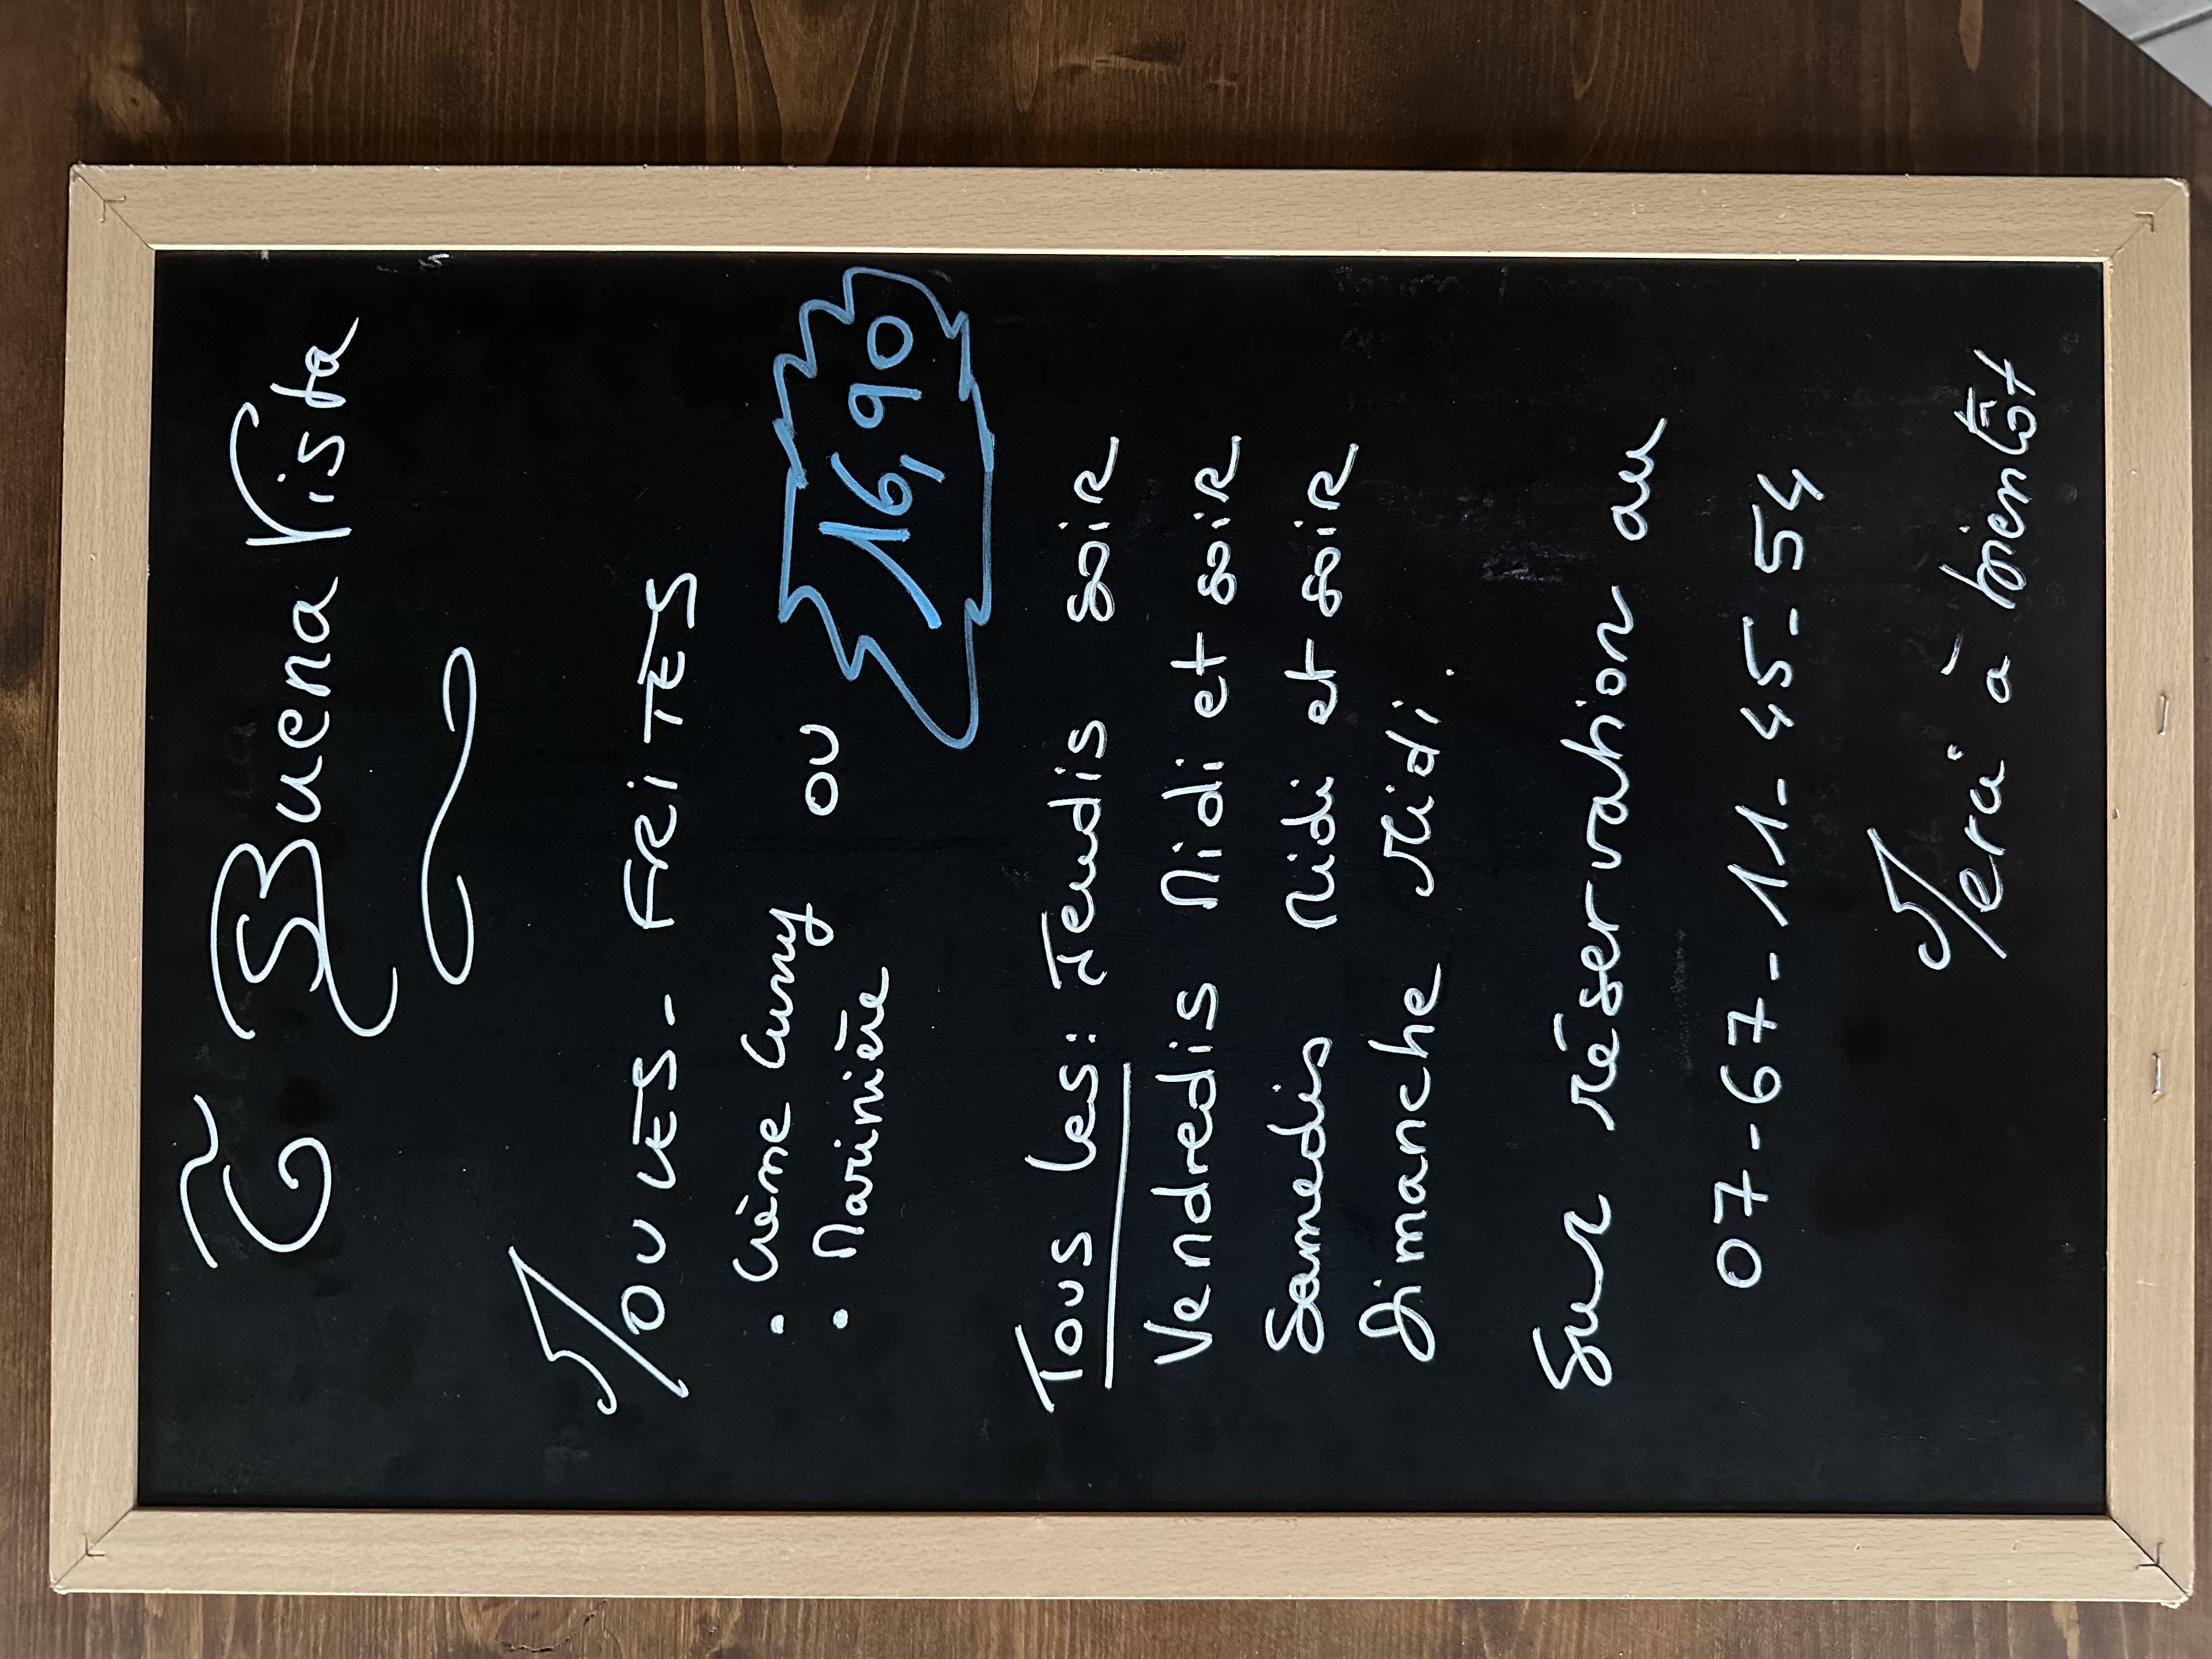 Buena Vista
MOULES - FRITES
• Crème Curry ou
• Marinière
16,90
Tous les : Jeudis soir
Vendredis Midi et soir
Samedis Midi et soir
Dimanche Midi.
Sur réservation au
07-67-11-45-54
Merci à bientôt